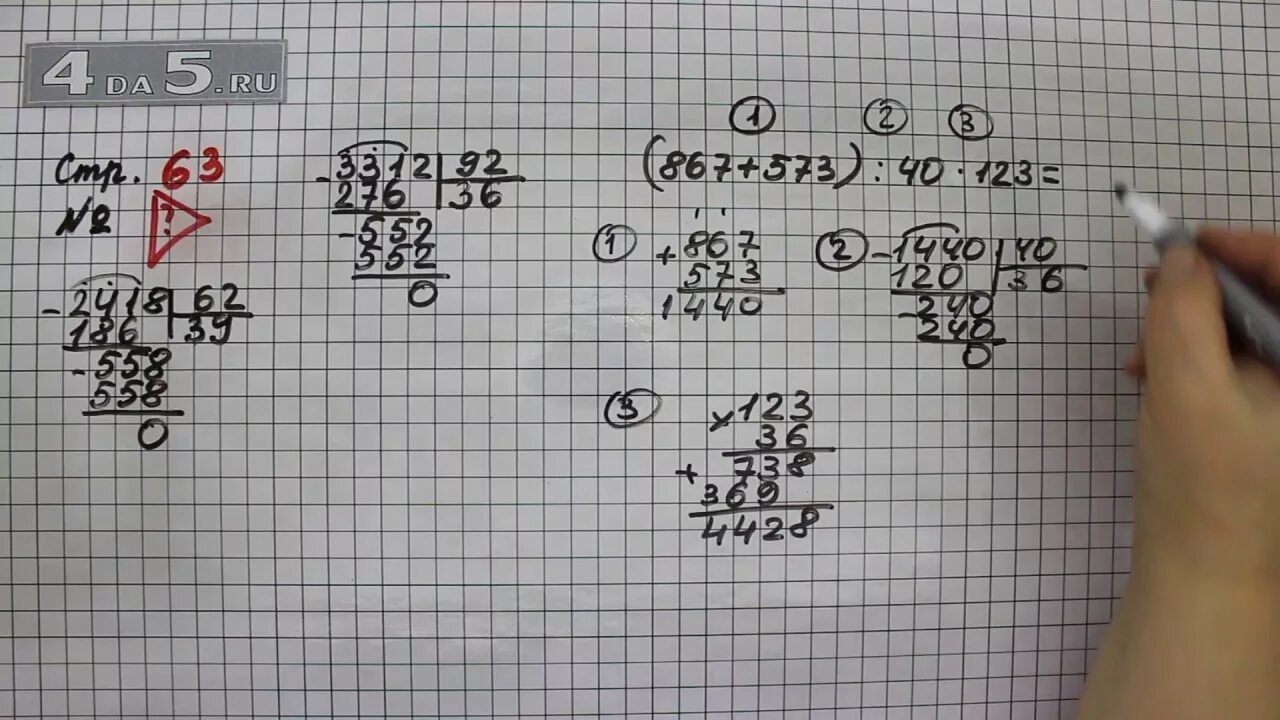 4DA5.RU
Стр. 63
№2
?
- 2418 | 62
186 | 39
- 558
558
0
- 3312 | 92
276 | 36
- 552
552
0
1 2 3
(867+573):40·123=
1
+ 867
573
1440
2
- 1440 | 40
120 | 36
- 240
240
0
3
× 123
36
+ 738
369
4428